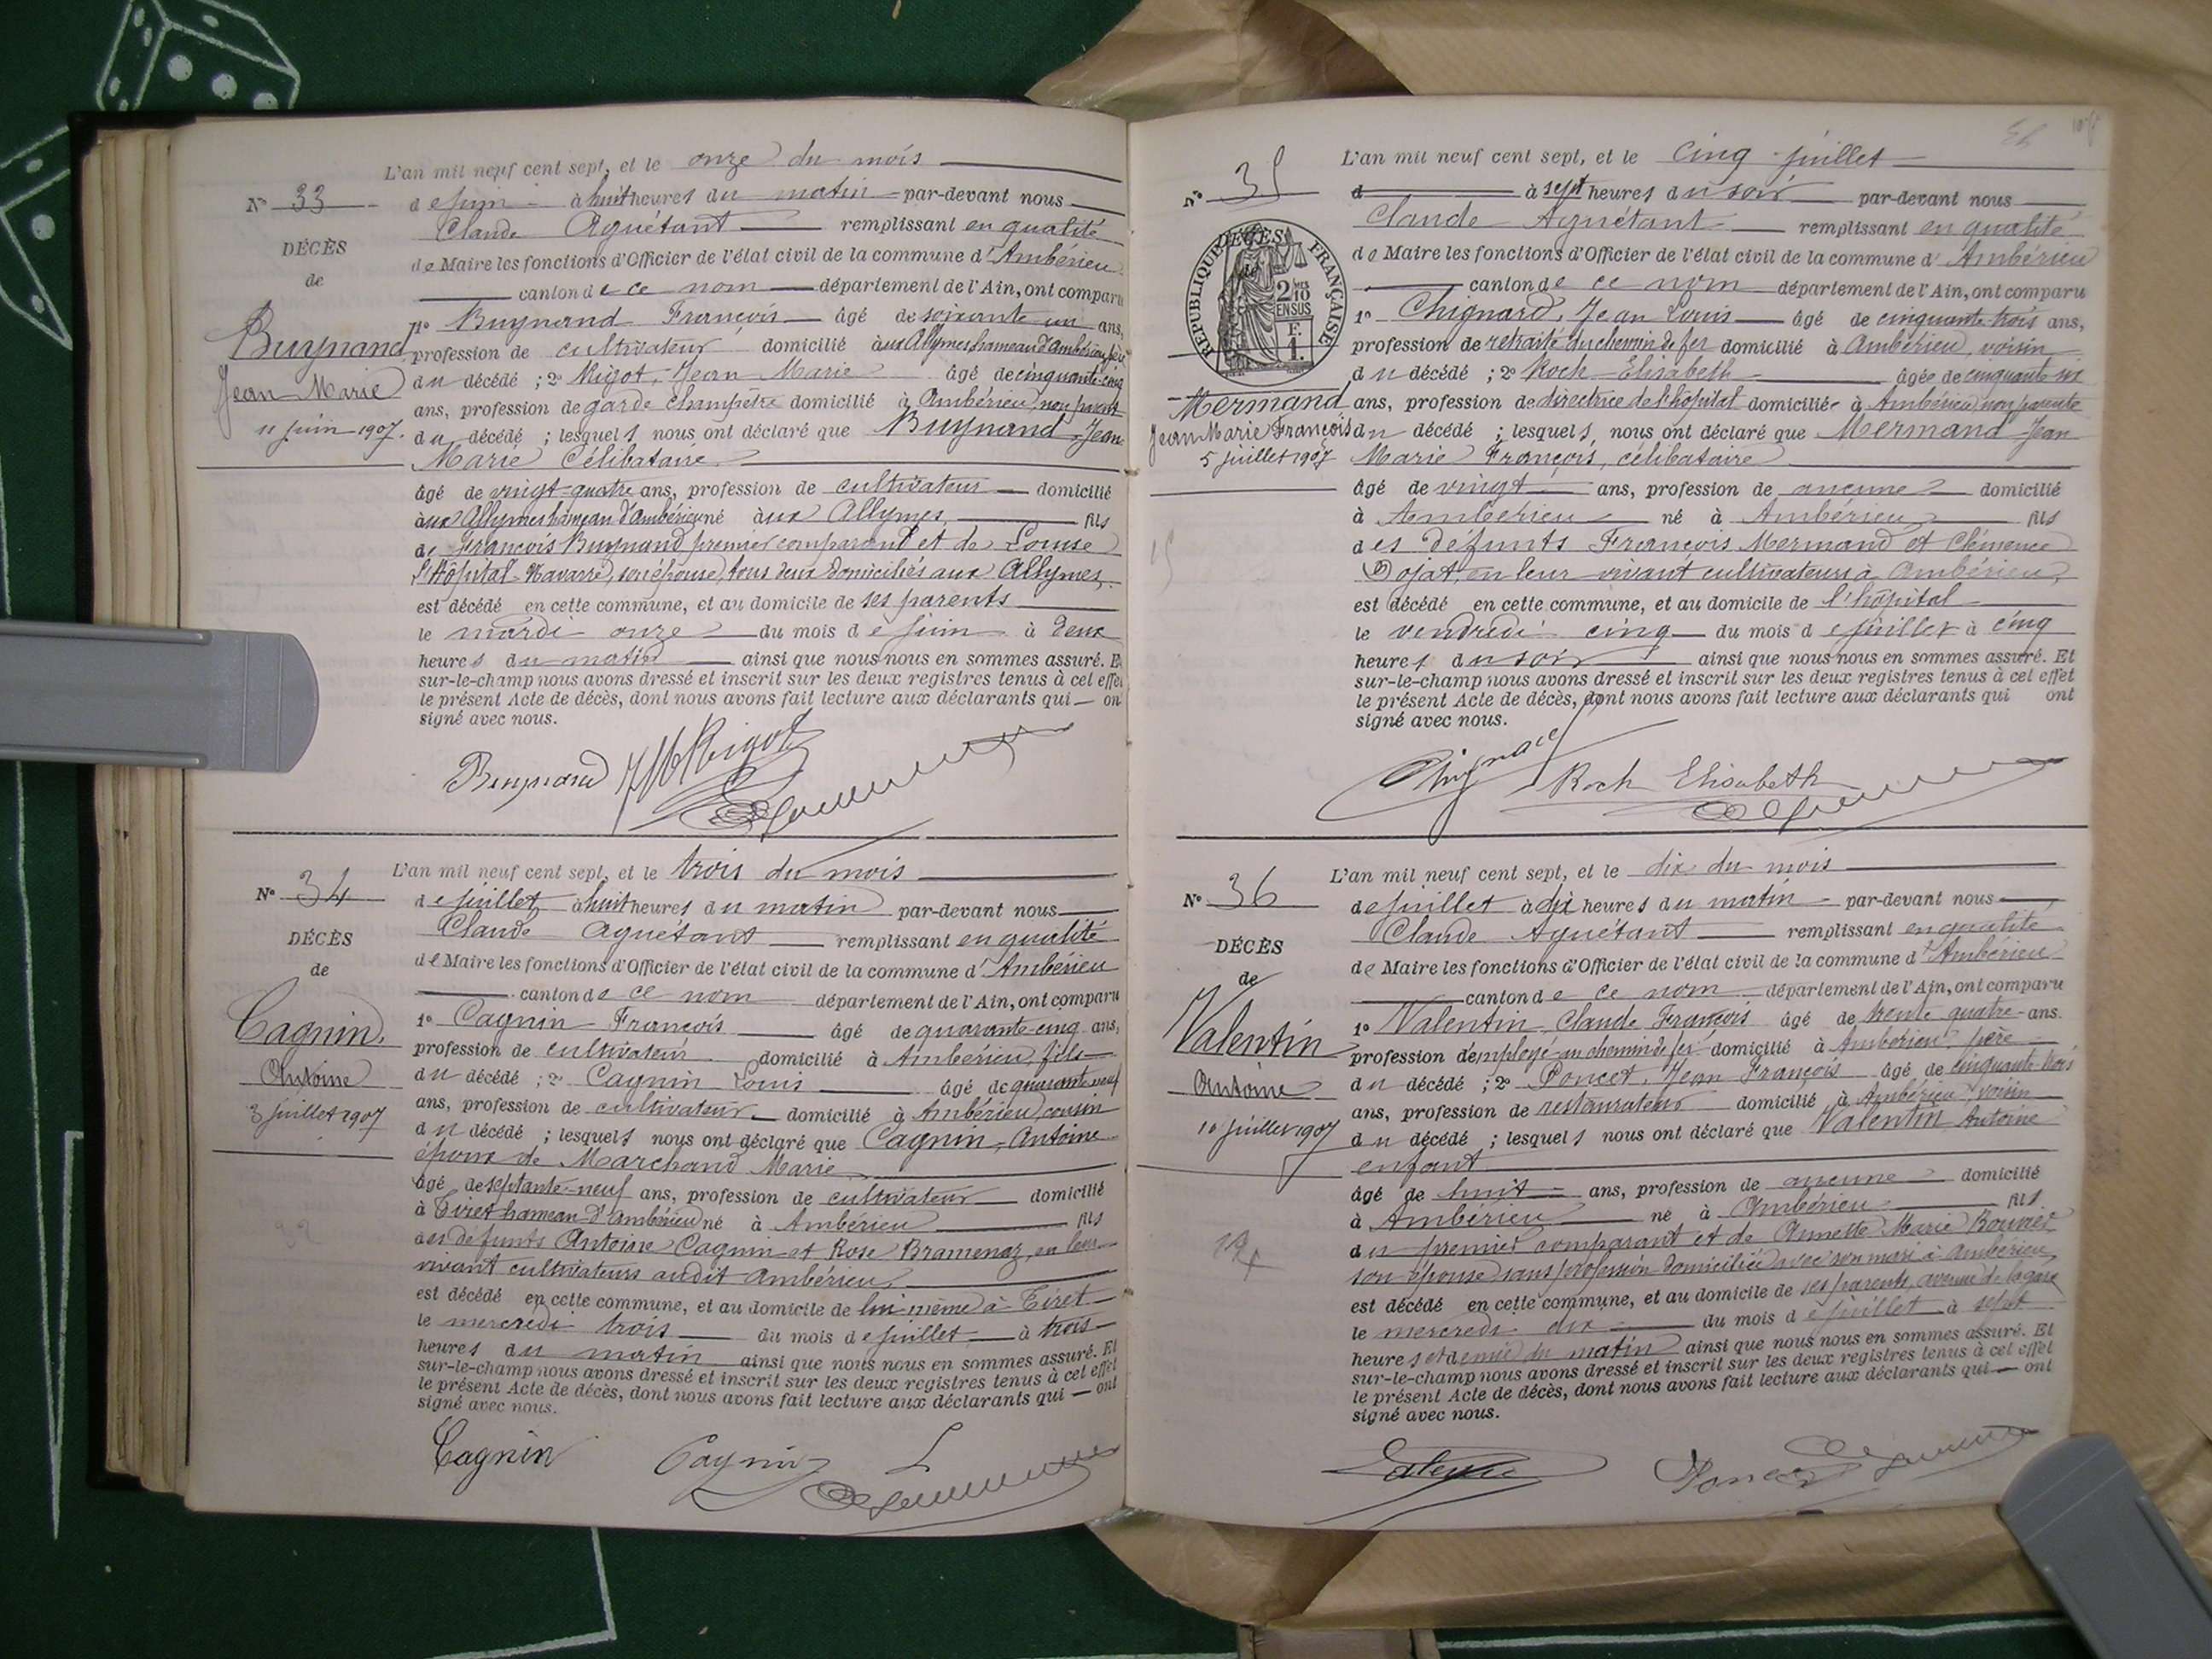 L'an mil neuf cent sept, et le onze du mois
N° 33
de juin à huit heures du matin par-devant nous
Claude Aguétant remplissant en qualité
DÉCÈS
de Maire les fonctions d'Officier de l'état civil de la commune d'Ambérieu
de
canton de ce nom département de l'Ain, ont comparu
1° Buynand François âgé de soixante un ans,
Buynand
profession de cultivateur domicilié aux Allymes hameau d'Ambérieu, père
Jean Marie
du décédé ; 2° Rigot, Jean Marie âgé de cinquante-cinq
ans, profession de garde champêtre domicilié à Ambérieu, non parent
11 juin 1907.
du décédé ; lesquels nous ont déclaré que Buynand, Jean
Marie Célibataire
âgé de vingt-quatre ans, profession de cultivateur domicilié
aux Allymes hameau d'Ambérieu né aux Allymes, fils
de François Buynand premier comparant et de Louise
L'Hôpital-Navarre, son épouse, tous deux domiciliés aux Allymes,
est décédé en cette commune, et au domicile de ses parents
le mardi onze du mois de juin à deux
heures du matin ainsi que nous nous en sommes assuré. Et
sur-le-champ nous avons dressé et inscrit sur les deux registres tenus à cet effet
le présent Acte de décès, dont nous avons fait lecture aux déclarants qui ont
signé avec nous.
Buynand JM Rigot
L'an mil neuf cent sept, et le trois du mois
N° 34
de juillet à huit heures du matin par-devant nous
Claude Aguétant remplissant en qualité
DÉCÈS
de Maire les fonctions d'Officier de l'état civil de la commune d'Ambérieu
de
canton de ce nom département de l'Ain, ont comparu
1° Cagnin François âgé de quarante-cinq ans,
Cagnin,
profession de cultivateur domicilié à Ambérieu, fils
Antoine
du décédé ; 2° Cagnin Louis âgé de quarante-neuf
ans, profession de cultivateur domicilié à Ambérieu, cousin
3 juillet 1907
du décédé ; lesquels nous ont déclaré que Cagnin, Antoine
époux de Marchand Marie
âgé de septante-neuf ans, profession de cultivateur domicilié
à Tiret hameau d'Ambérieu né à Ambérieu fils
des défunts Antoine Cagnin et Rose Bramenaz, en leur
vivant cultivateurs audit Ambérieu,
est décédé en cette commune, et au domicile de lui-même à Tiret
le mercredi trois du mois de juillet à trois
heures du matin ainsi que nous nous en sommes assuré. Et
sur-le-champ nous avons dressé et inscrit sur les deux registres tenus à cet effet
le présent Acte de décès, dont nous avons fait lecture aux déclarants qui ont
signé avec nous.
Cagnin Cagnin L
L'an mil neuf cent sept, et le cinq juillet
N° 35
d à sept heures du soir par-devant nous
Claude Aguétant remplissant en qualité
DÉCÈS
RÉPUBLIQUE FRANÇAISE
de
2/10 EN SUS
F. 1.
de Maire les fonctions d'Officier de l'état civil de la commune d'Ambérieu
canton de ce nom département de l'Ain, ont comparu
1° Chignard, Jean Louis âgé de cinquante-trois ans,
profession de retraité du chemin de fer domicilié à Ambérieu, voisin
du décédé ; 2° Roch Elisabeth âgée de cinquante six
Mermand
ans, profession de directrice de l'hôpital domiciliée à Ambérieu, non parente
Jean Marie François
du décédé ; lesquels nous ont déclaré que Mermand Jean
5 juillet 1907
Marie François, célibataire
âgé de vingt ans, profession de aucune domicilié
à Ambérieu né à Ambérieu fils
des défunts François Mermand et Clémence
Bojat, en leur vivant cultivateurs à Ambérieu,
est décédé en cette commune, et au domicile de l'hôpital
le vendredi cinq du mois de juillet à cinq
heures du soir ainsi que nous nous en sommes assuré. Et
sur-le-champ nous avons dressé et inscrit sur les deux registres tenus à cet effet
le présent Acte de décès, dont nous avons fait lecture aux déclarants qui ont
signé avec nous.
Chignard Roch Elisabeth
L'an mil neuf cent sept, et le dix du mois
N° 36
de juillet à dix heures du matin par-devant nous
Claude Aguétant remplissant en qualité
DÉCÈS
de Maire les fonctions d'Officier de l'état civil de la commune d'Ambérieu
de
canton de ce nom département de l'Ain, ont comparu
1° Valentin, Claude François âgé de trente quatre ans.
Valentin
profession d'employé au chemin de fer domicilié à Ambérieu, père
Antoine
du décédé ; 2° Poncet, Jean François âgé de cinquante-trois
ans, profession de restaurateur domicilié à Ambérieu, voisin
10 juillet 1907
du décédé ; lesquels nous ont déclaré que Valentin Antoine
enfant
âgé de huit ans, profession de aucune domicilié
à Ambérieu né à Ambérieu fils
du premier comparant et de Annette Marie Bouvier
son épouse sans profession domiciliée avec son mari à Ambérieu,
est décédé en cette commune, et au domicile de ses parents, avenue de la gare
le mercredi dix du mois de juillet à sept
heures et demie du matin ainsi que nous nous en sommes assuré. Et
sur-le-champ nous avons dressé et inscrit sur les deux registres tenus à cet effet
le présent Acte de décès, dont nous avons fait lecture aux déclarants qui ont
signé avec nous.
Valentin Poncet